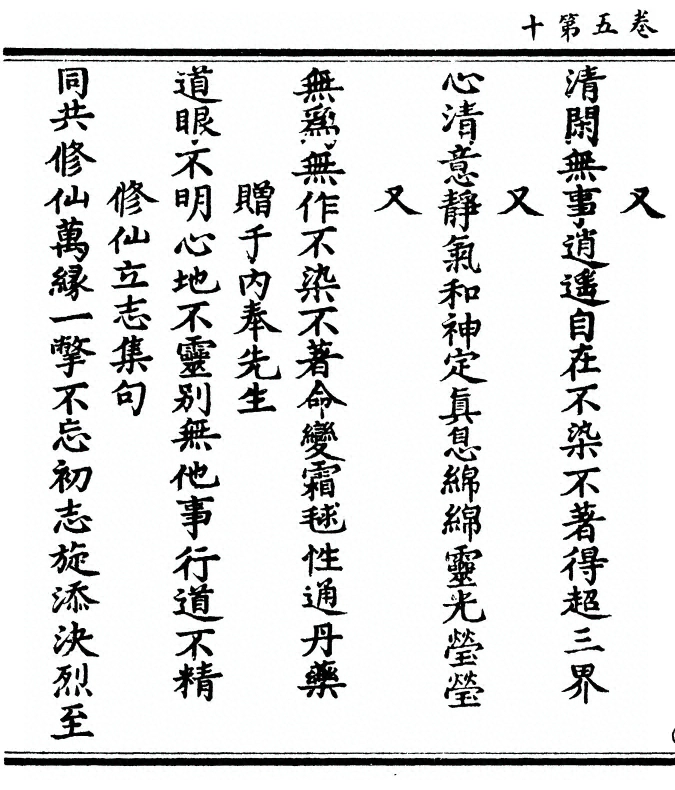 十第五卷
又
清閑無事逍遥自在不染不著得超三界
又
心清意靜氣和神定真息綿綿靈光瑩瑩
又
無爲無作不染不著命變霜毬性通丹藥
贈于內奉先生
道眼不明心地不靈別無他事行道不精
修仙立志集句
同共修仙萬緣一撆不忘初志旋添決烈至